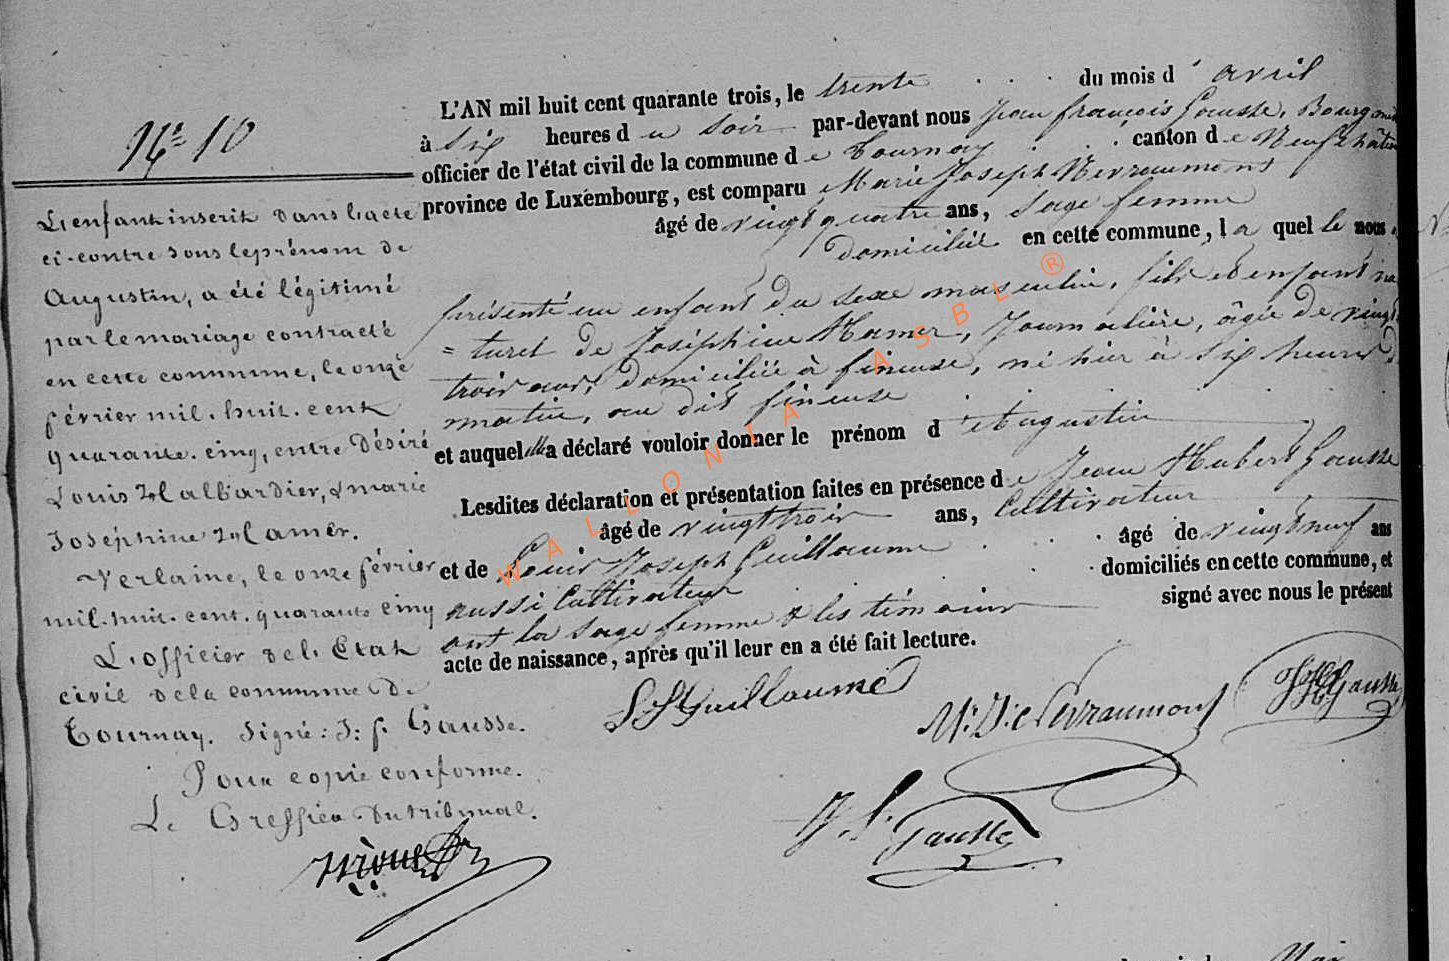 N° 10
L'enfant inscrit dans l'acte
ci-contre sous le prénom de
Augustin, a été légitimé
par le mariage contracté
en cette commune, le onze
février mil. huit. cent
quarante. cinq, entre Désiré
Louis Hallbardier, & marie
Joséphine Hamer.
Verlaine, le onze février
mil. huit. cent. quarante cinq
L'officier de l'Etat
civil de la commune de
Tournay. Signé: J: f. Gausse.
Pour copie conforme.
Le Greffier du tribunal.
L'AN mil huit cent quarante trois, le trente du mois d'avril
à Six heures du soir par-devant nous Jean françois Gausse, Bourgm
officier de l'état civil de la commune de Tournay canton de Neufchâteau
province de Luxembourg, est comparu Marie Joseph Nevraumont
âgé de vingt quatre ans, Sage femme
domiciliée en cette commune, la quel le nous a
présenté un enfant du sexe masculin, fils et enfant na
= turel de Joséphine Hamer, Journalière, âgée de vingt
trois ans, domiciliée à fineuse, né hier à six heures d
matin, au dit fineuse
et auquel elle a déclaré vouloir donner le prénom d'Augustin
Lesdites déclaration et présentation faites en présence de Jean Hubert Gausse
âgé de vingt trois ans, Cultivateur
et de Louis Joseph Guillaume âgé de vingt neuf ans
aussi Cultivateur domiciliés en cette commune, et
ont la sage femme & les témoins signé avec nous le présent
acte de naissance, après qu'il leur en a été fait lecture.
L J Guillaume
M: J: e Nevraumont
J H Gausse
J. f. Gausse
WALLONIA ASBL ®